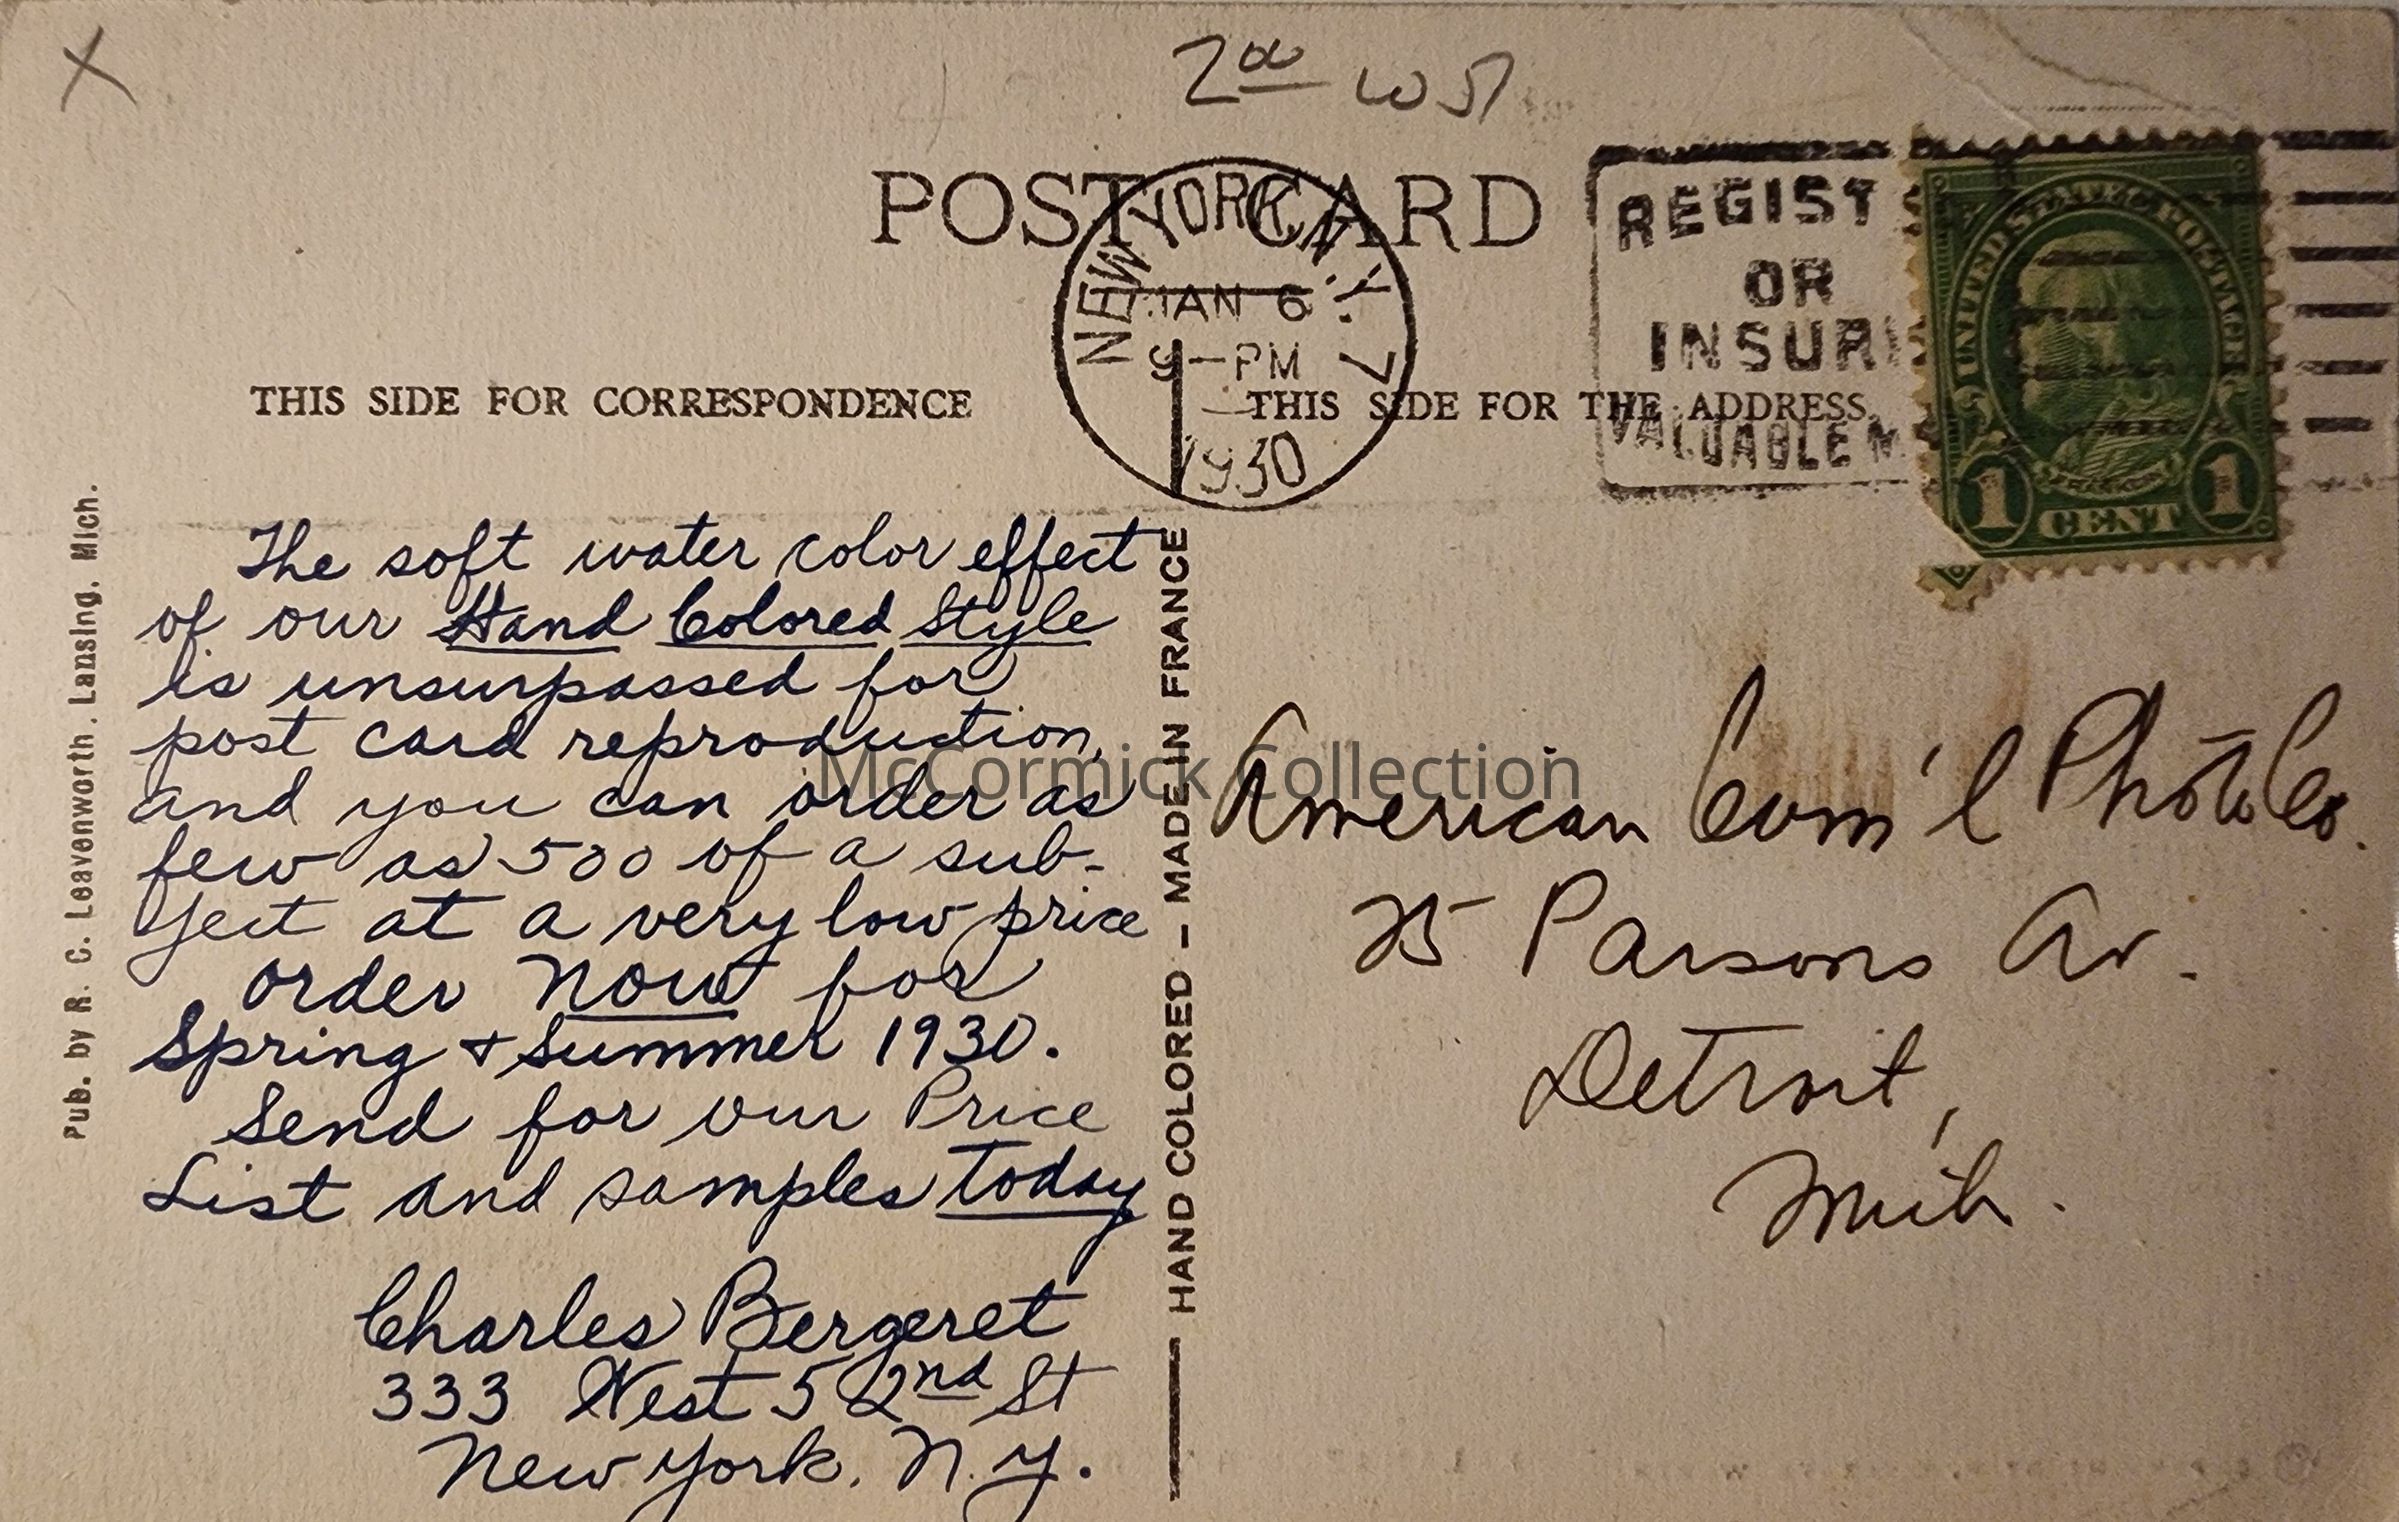 X
2 00
POST CARD
NEW YORK, N.Y.
JAN 6
9-PM
1930
REGIST
OR
INSUR
VALUABLE M
UNITED STATES POSTAGE
FRANKLIN
1 CENT 1
THIS SIDE FOR CORRESPONDENCE
THIS SIDE FOR THE ADDRESS
Pub. by R. C. Leavenworth, Lansing, Mich.
The soft water color effect
of our Hand Colored Style
is unsurpassed for
post card reproduction,
and you can order as
few as 500 of a sub-
ject at a very low price
order now for
Spring + Summer 1930.
Send for our Price
List and samples today
Charles Bergeret
333 West 52nd St
New York, N.Y.
HAND COLORED - MADE IN FRANCE
American Com'l Photo Co.
25 Parsons Av.
Detroit,
Mich.
McCormick Collection